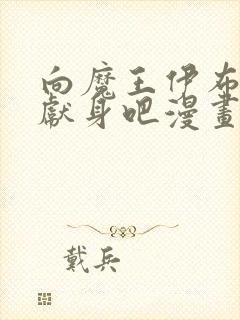 向魔王伊布
獻身吧漫畫
戴兵